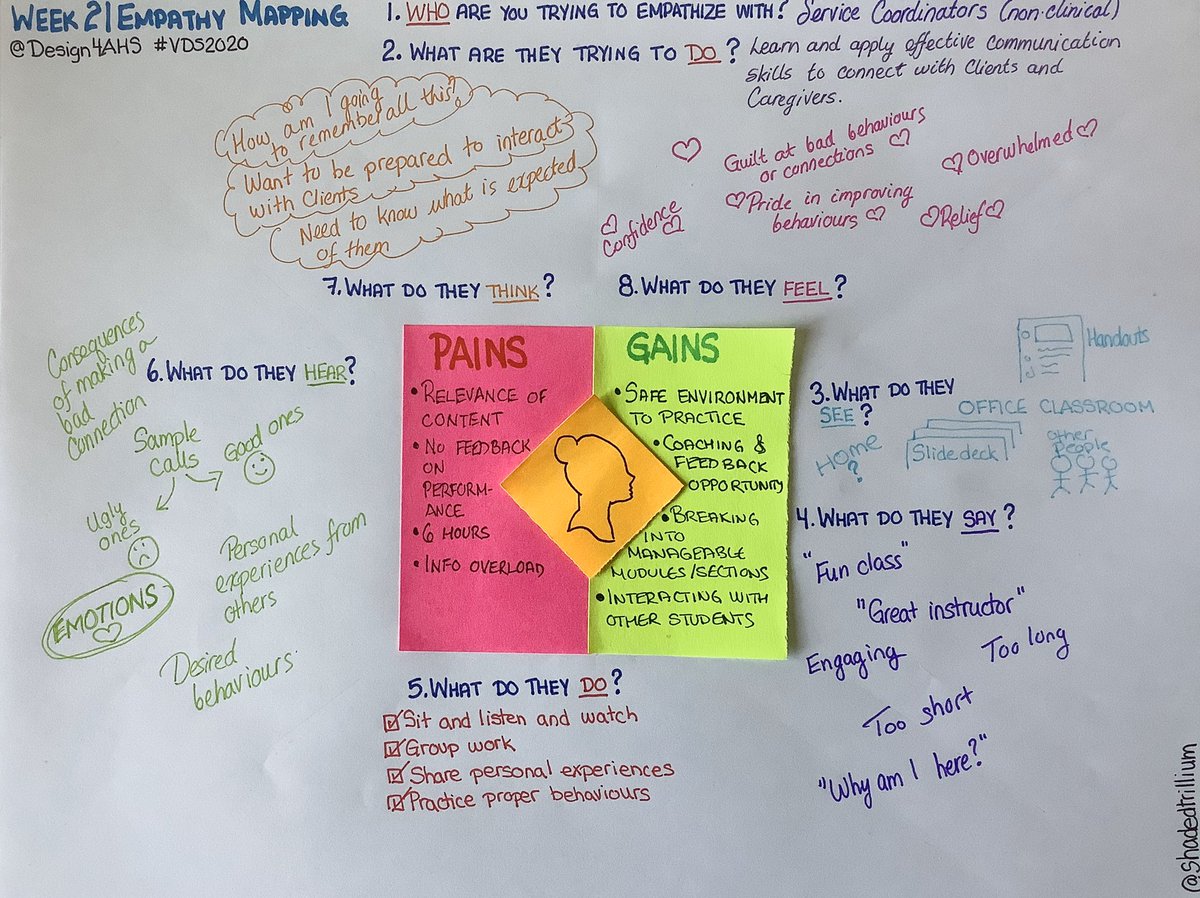 WEEK 2 | EMPATHY MAPPING
@Design4AHS #VDS2020
1. WHO ARE YOU TRYING TO EMPATHIZE WITH? Service Coordinators (non-clinical)
2. WHAT ARE THEY TRYING TO DO? Learn and apply effective communication
skills to connect with Clients and
Caregivers.
How am I going
to remember all this?
Want to be prepared to interact
with Clients
Need to know what is expected
of them
Guilt at bad behaviours
or connections
Overwhelmed
Pride in improving
behaviours
Confidence
Relief
7. WHAT DO THEY THINK?
8. WHAT DO THEY FEEL?
Consequences
of making a
bad
connection
6. WHAT DO THEY HEAR?
Sample
calls
Good ones
Ugly
ones
EMOTIONS
Personal
experiences from
others
Desired
behaviours
PAINS
• RELEVANCE OF
CONTENT
• NO FEEDBACK
ON
PERFORM-
ANCE
• 6 HOURS
• INFO OVERLOAD
GAINS
• SAFE ENVIRONMENT
TO PRACTICE
• COACHING &
FEEDBACK
OPPORTUNITY
• BREAKING
INTO
MANAGEABLE
MODULES/SECTIONS
• INTERACTING WITH
OTHER STUDENTS
3. WHAT DO THEY
SEE?
Handouts
OFFICE CLASSROOM
HOME
?
Slidedeck
other
People
4. WHAT DO THEY SAY?
"Fun class"
"Great instructor"
Engaging
Too long
Too short
"Why am I here?"
5. WHAT DO THEY DO?
Sit and listen and watch
Group work
Share personal experiences
Practice proper behaviours
@shadedtrillium